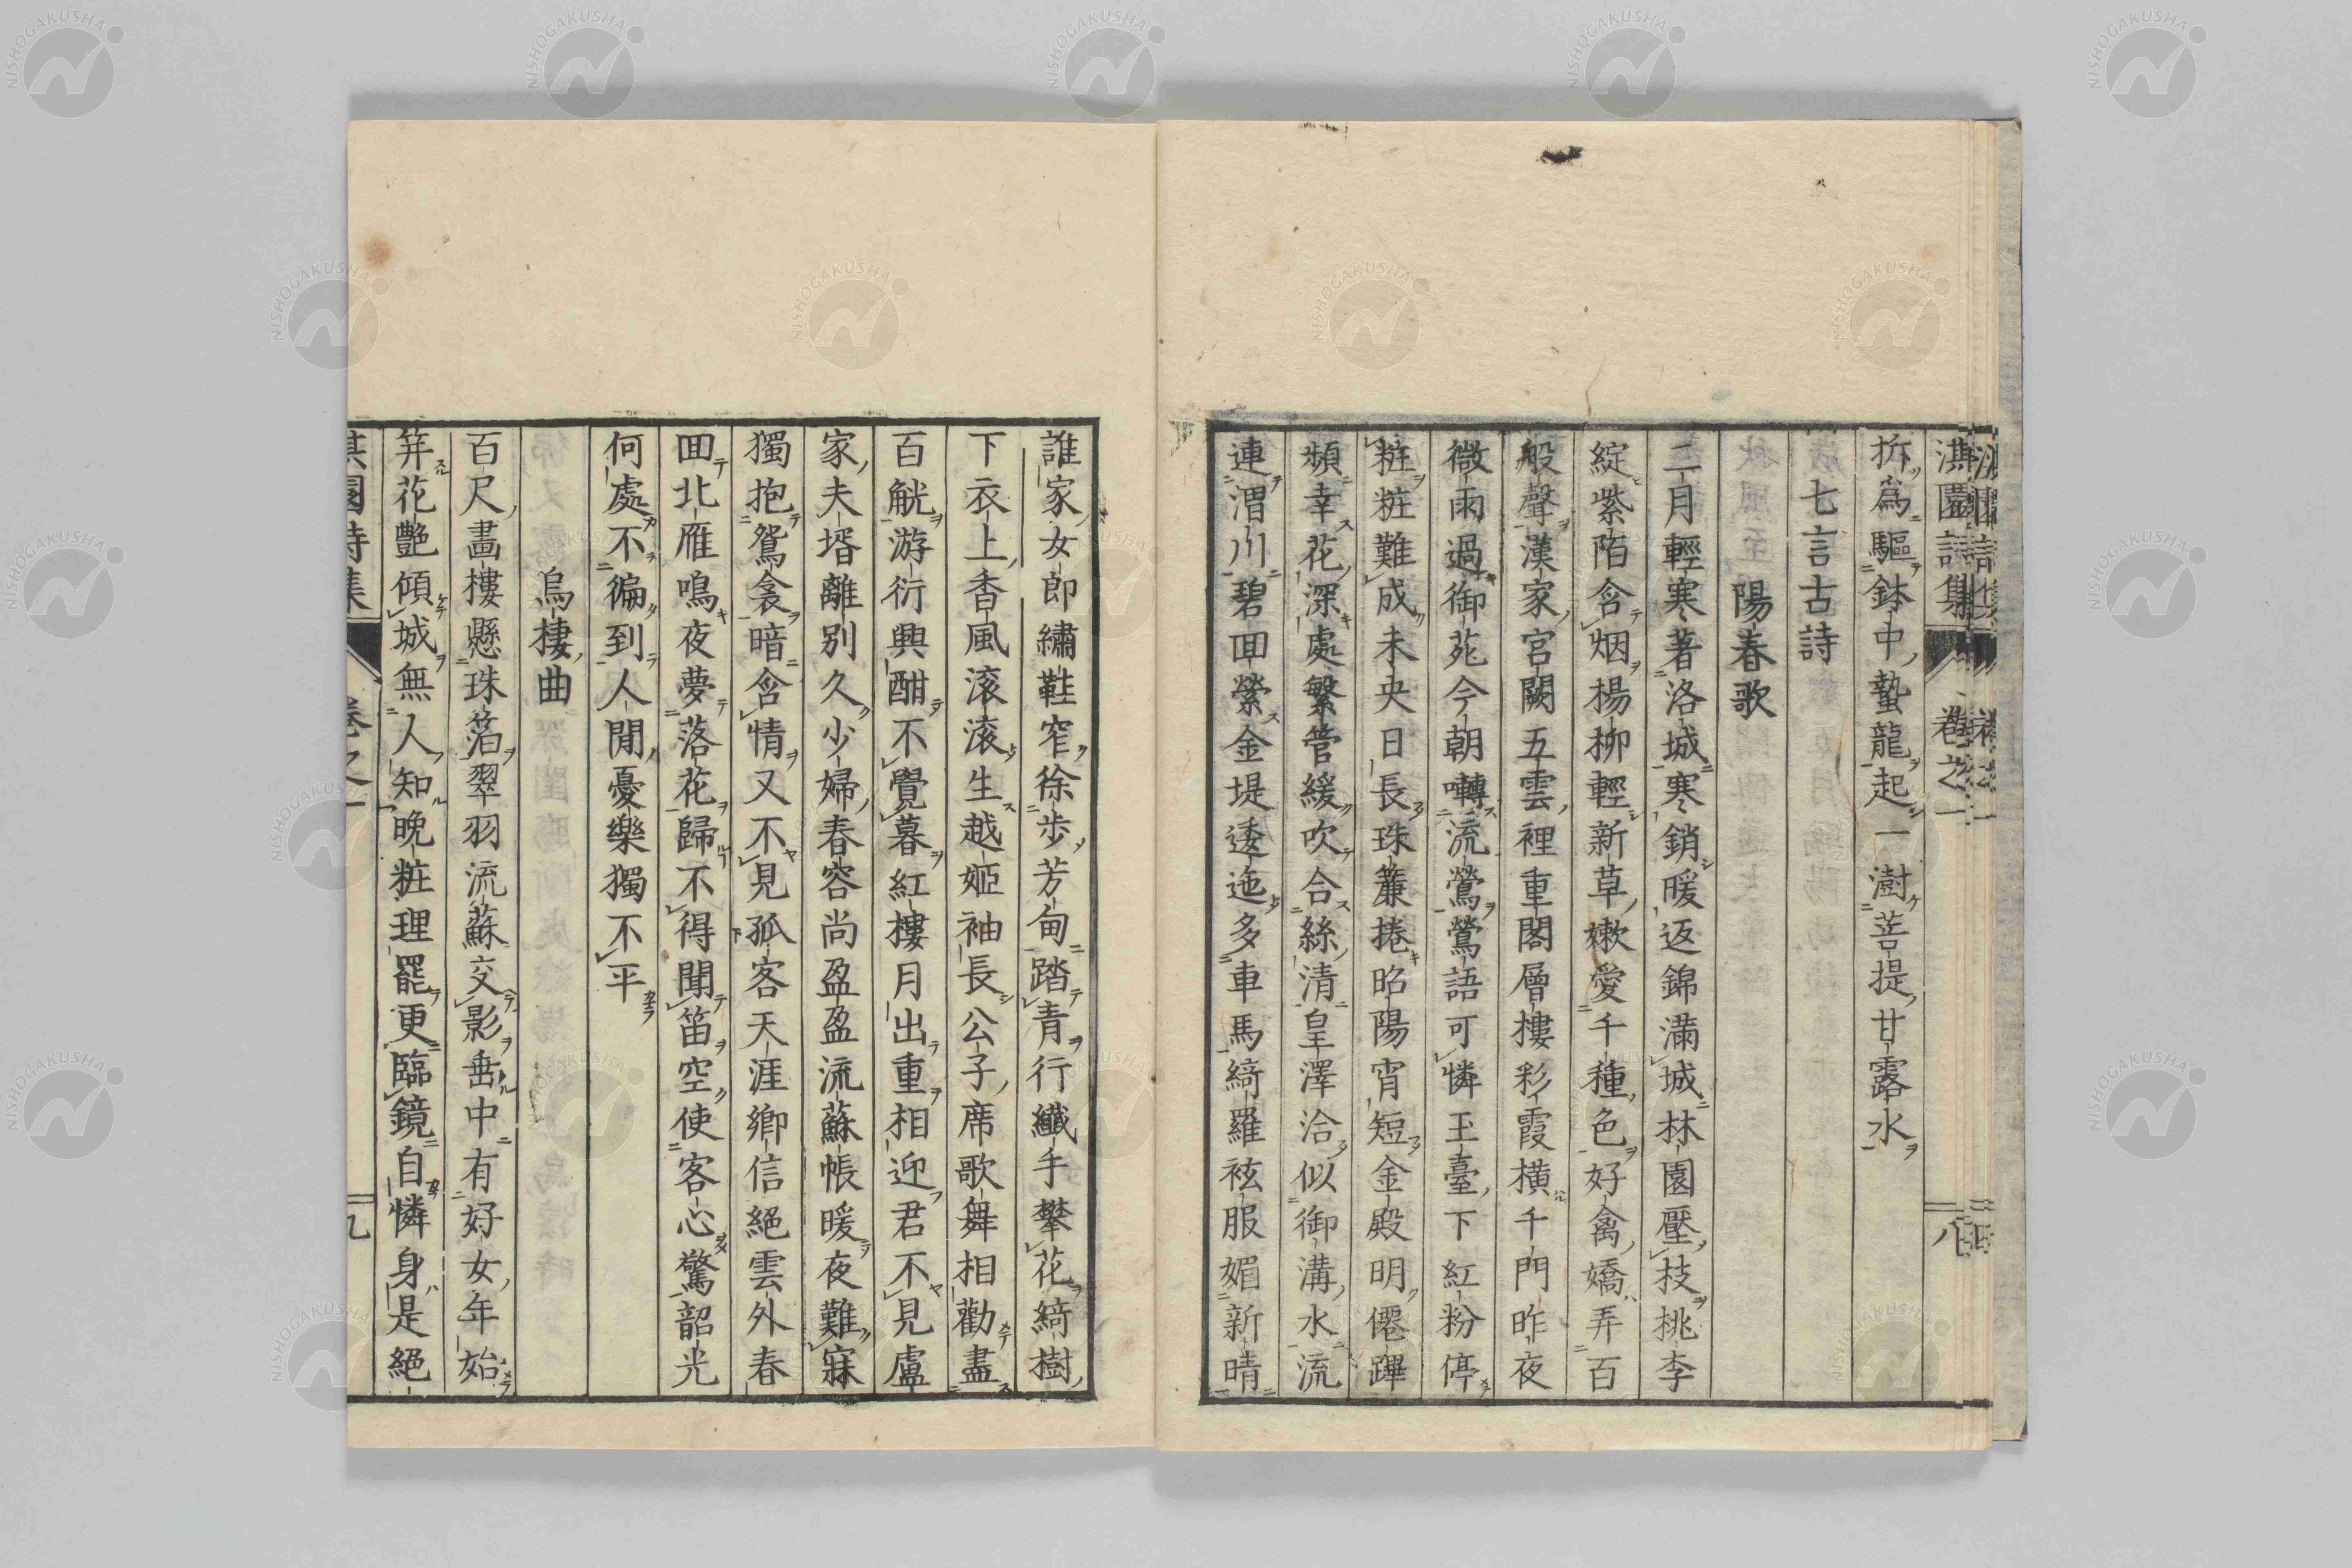 淇園詩集 卷之一 八
拆爲驅鉢中蟄龍起一澍菩提甘露水
七言古詩
陽春歌
二月輕寒著洛城寒銷暖返錦滿城林園壓枝桃李
綻紫陌含烟楊柳輕新草嫩愛千種色好禽嬌弄百
般聲漢家宮闕五雲裡重閣層樓彩霞橫千門昨夜
微雨過御苑今朝囀流鶯鶯語可憐玉臺下紅粉停
粧粧難成未央日長珠簾捲昭陽宵短金殿明僊蹕
頻幸花深處繁管緩吹合絲清皇澤洽似御溝水流
連渭川碧回縈金堤逶迤多車馬綺羅袨服媚新晴
誰家女郎繡鞋窄徐步芳甸踏青行纖手攀花綺樹
下衣上香風滾滾生越姬袖長公子席歌舞相勸盡
百觥游衍興酣不覺暮紅樓月出重相迎君不見盧
家夫壻離別久少婦春容尚盈盈流蘇帳暖夜難寐
獨抱鴛衾暗含情又不見孤客天涯鄉信絕雲外春
回北雁鳴夜夢落花歸不得聞笛空使客心驚韶光
何處不徧到人間憂樂獨不平
烏棲曲
百尺畵樓懸珠箔翠羽流蘇交影垂中有好女年始
笄花艷傾城無人知晚粧理罷更臨鏡自憐身是絕
淇園詩集 卷之一 九
NISHOGAKUSHA